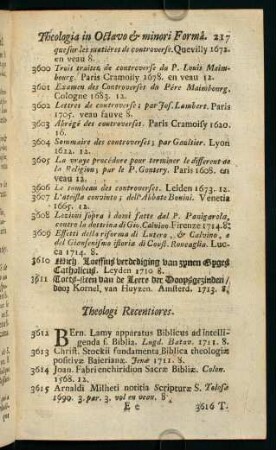 Theologia in Octavo & minori Formâ. 217
que sur les matiéres de controverse. Quevilly 1672.
en veau 8.
3600 Trois traitez de controverse du P. Louis Maimbourg. Paris Cramoisy 1678. en veau 12.
3601 Examen des Controverses du Pére Maimbourg.
Cologne 1683. 12.
3602 Lettres de controverses par Jos. Lambert. Paris
1705. veau fauve 8.
3603 Abregé des controverses. Paris Cramoisy 1620.
16.
3604 Sommaire des controverses; par Gaultier. Lyon
1622. 12.
3605 La vraye procédure pour terminer le different de
la Religion; par le P. Gontery. Paris 1608. en
veau 12.
3606 Le tombeau des controverses. Leiden 1673. 12.
3607 L'ateista convinto; dell'Abbate Bonini. Venetia
1665. 12.
3608 Lezioni sopra i domi fatte dal P. Panigarola,
contro la dottrina di Gio. Calvino Firenze 1714. 8.
3609 Effetti della riforma di Lutero, & Calvino, e
del Giansenismo istoria di Const. Roncaglia. Lucca 1714. 8.
3610 Mich. Loeffius verdediging van zynen Opgez
Catholicus. Leyden 1710 8.
3611 Corts-inen van de Leere der Doopsgezinden /
door Kornel. van Huyzen. Amsterd. 1713. 8.
Theologi Recentiores.
3612 Bern. Lamy apparatus Biblicus ad intelligenda s. Biblia. Lugd. Batav. 1711. 8.
3613 Christ. Stockii fundamenta Biblica theologiæ
positivæ Baierianæ. Jenæ 1711. 8.
3614 Joan. Fabri enchiridion Sacræ Bibliæ. Colon.
1568. 12.
3615 Arnaldi Milheti notitia Scripturæ S. Tolosæ
1690. 3. par. 3. vol en veau. 8.
E e 3616 T.